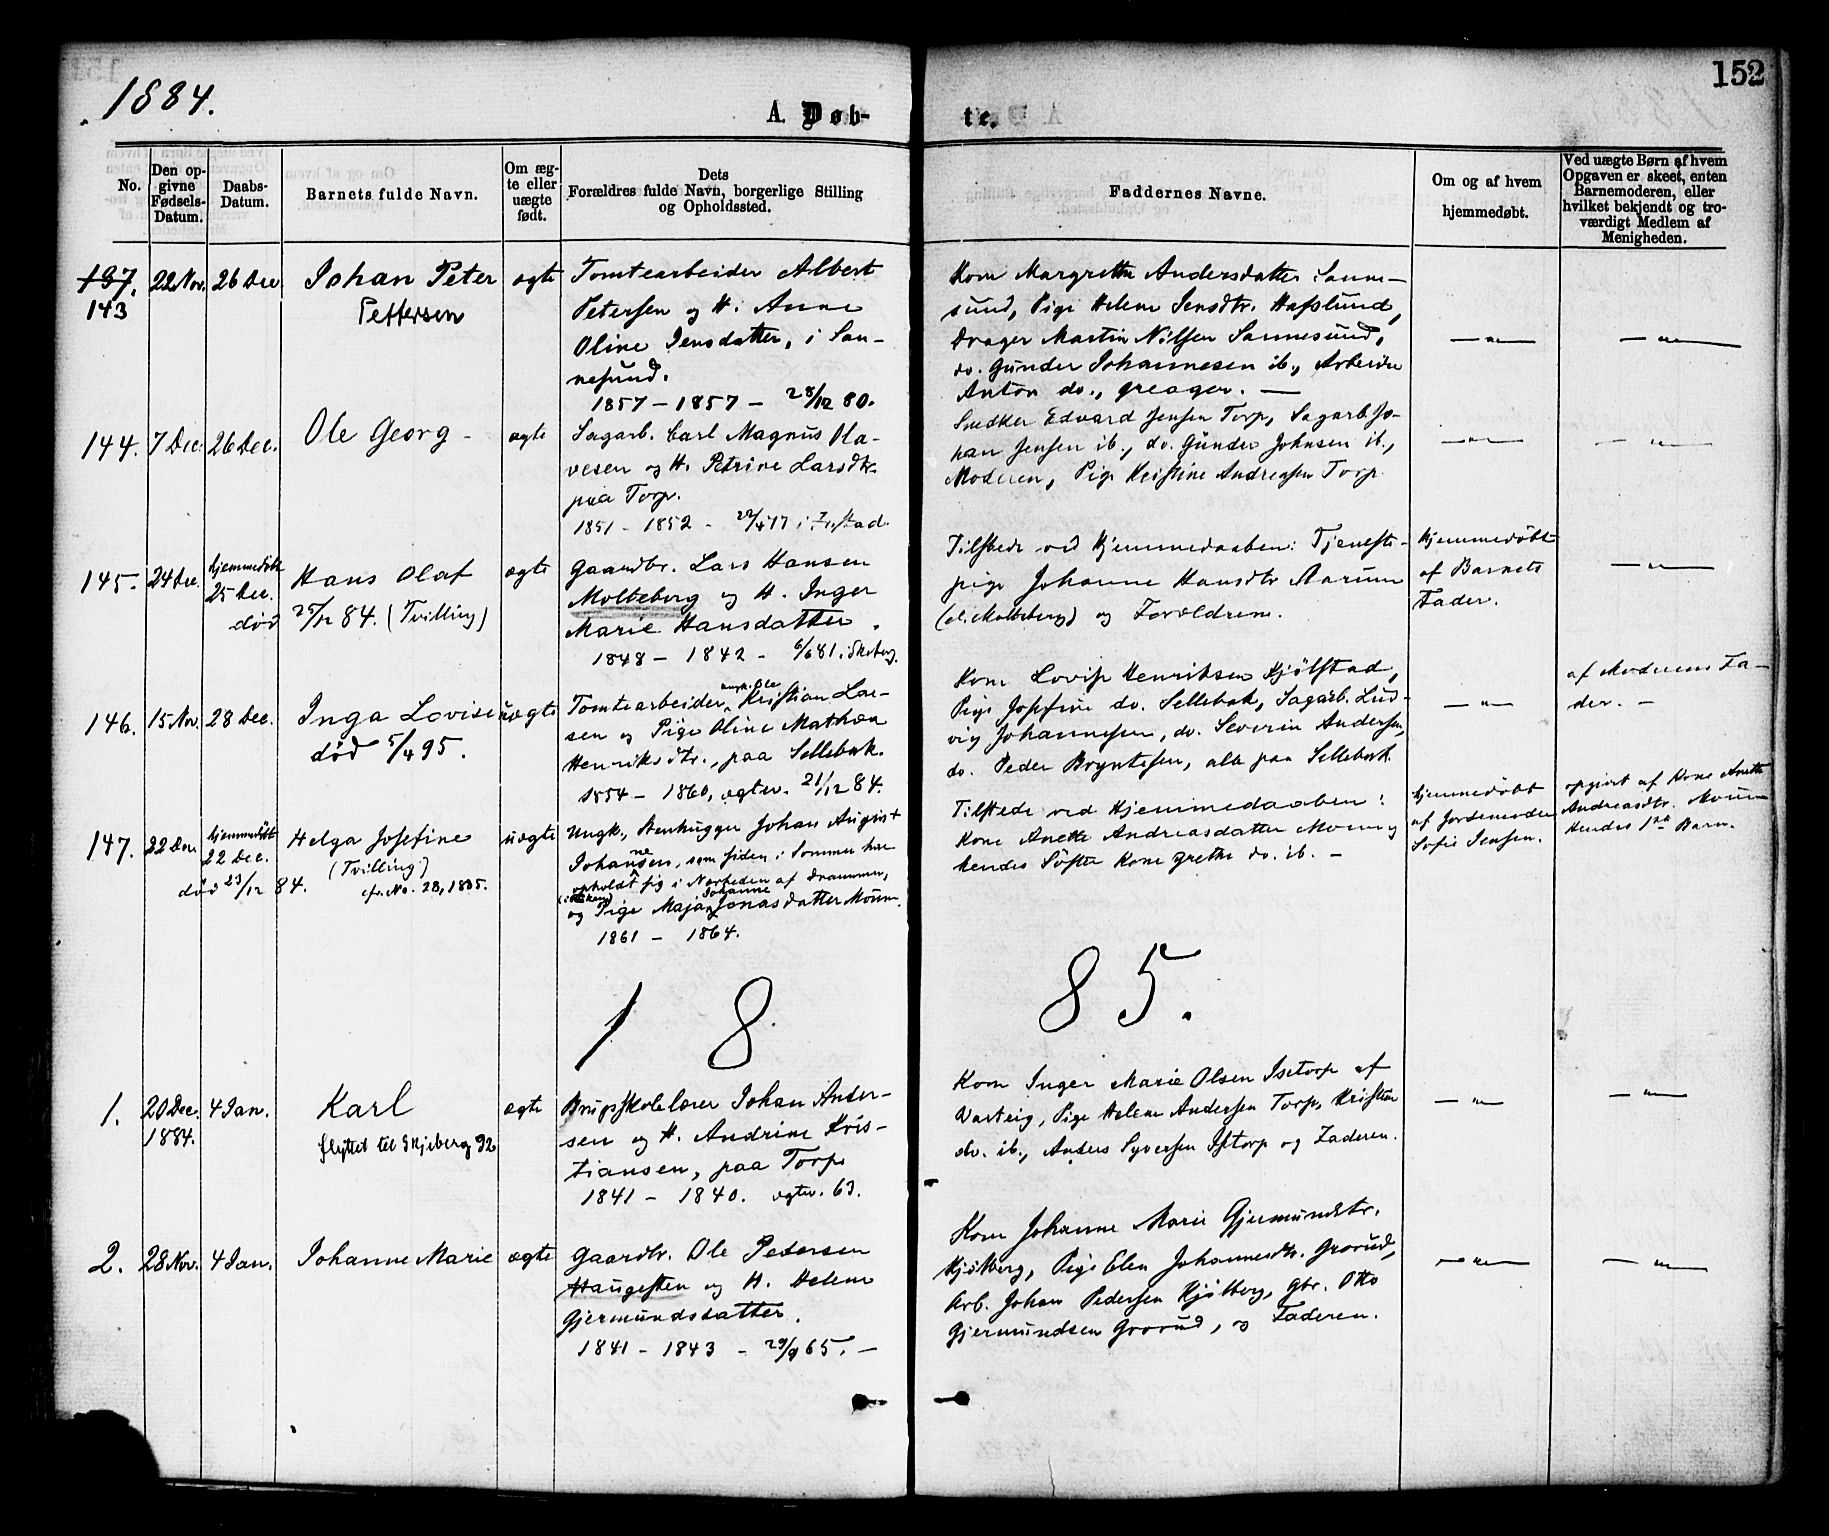 1884.
152
A. Døb-
te.
No.
Den op-
givne
Fødsels-
Datum.
Daabs-
Datum.
Barnets fulde Navn.
Om æg-
te eller
uægte
født.
Dets
Forældres fulde Navn, borgerlige Stilling
og Opholdssted.
Faddernes Navne.
Om og af hvem
hjemmedøbt.
Ved uægte Børn af hvem
Opgaven er skeet, enten
Barnemoderen, eller
hvilket bekjendt og tro-
værdigt Medlem af
Menigheden.
137.
143
22 Nov.
26 Dec
Johan Peter
Pettersen
ægte
Tomtearbeider Albert
Petersen og H. Anne
Oline Jensdatter, i San-
nesund.
1857 - 1857 - 28/12 80.
Kone Margrethe Andersdatter Sanne-
sund, Pige Helene Jensdtr. Hafslund,
Drager Martin Nilsen Sannesund,
do. Gunder Johannesen ib., Arbeider
Anton do., Greager. -
- " -
- " -
144.
7 Dec.
26 Dec.
Ole Georg -
ægte
Sagarb. Carl Magnus Ola-
vesen og H. Petrine Larsdtr.
paa Torp.
1851 - 1852 - 77 i
Snedker Edvard Jensen Torp, Sagarb. Jo-
han Jensen ib., do. Gunder Johnsen ib.,
Moderen, Pige Kristine Andreasen Torp.
- " -
- " -
145.
24 Dec.
hjemmedøbt
25 Dec.
Hans Olaf
død 25/12 84. (Tvilling)
ægte
Gaardbr. Lars Hansen
Molteberg og H. Inger
Marie Hansdatter.
1848 - 1842 - 6/6 81 i Skeberg.
Tilstede ved Hjemmedaaben: Tjeneste-
pige Johanne Hansdtr Aarum
Molteberg) og Forældrene.
Hjemmedøbt
af Barnets
Fader.
- " -
146.
15 Nov.
28 Dec.
Inga Lovise
død 5/4 95.
uægte
ungk. Ole
Tomtearbeider, Kristian Lar-
sen og Pige Oline Mathea
Henriksdtr., paa Sellebak.
1854 - 1860, ægtev. 21/12 84.
Kone Lovise Henriksen Kjølstad,
Pige Josefine do. Sellebak, Sagarb. Lud-
vig Johannesen, do. Severin Andersen,
do. Peder Bryntesen, alle paa Sellebak.
- " -
af Moderens Fa-
der. -
147.
22 Dec.
hjemmedøbt
22 Dec.
død 23/12 84.
Helga Josefine
(Tvilling)
cfr. No. 28, 1885.
uægte
Ungk., Stenhugger Johan August
Johannesen, som siden i Sommer har
opholdt sig i Nærheden af Drammen,
og Pige Maja Johanne Jonasdatter Moum.
1861 - 1864.
Tilstede ved Hjemmedaaben:
Kone Anette Andreasdatter Moum og
hendes Søster Kone Grethe do. ib. -
hjemmedøbt
af Jordemoder
Sofie Jensen.
opgivet af Kone Anette
Andreasdtr. Moum
Hendes 1ste Barn.
1 8
8 5.
1.
20 Dec.
1884.
4 Jan.
Karl
flyttet til Skjeberg 92
ægte
Brugsskolelærer Johan Ander-
sen og H. Andrine Kris-
tiansen, paa Torp
1841 - 1840. ægtev. 63.
Kone Inger Marie Olsen Isetorp af
Varteig, Pige Helene Andersen Torp, Kristian
do. ib., Anders Syversen Isetorp og Faderen.
- " -
- " -
2.
28 Nov.
4 Jan.
Johanne Marie
ægte
Gaardbr. Ole Petersen
Haugesten og H. Helene
Gjermundsdatter.
1841 - 1843 - 29/9 65. -
Kone Johanne Marie Gjermundsdtr.
Kjølberg, Pige Elen Johannesdtr. Grorud,
Arb. Johan Pedersen Kjølberg, Gbr. Otto
Gjermundsen Grorud, og Faderen.
- " -
- " -